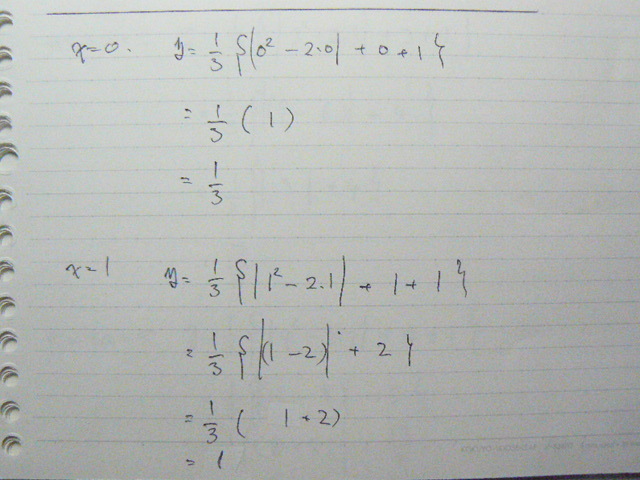 x=0. y= 1/3 {|0² - 2·0| + 0 + 1}
= 1/3 ( 1 )
= 1/3
x=1 y= 1/3 {|1² - 2·1| + 1 + 1}
= 1/3 {|(1 - 2)| + 2}
= 1/3 ( 1 + 2)
= 1